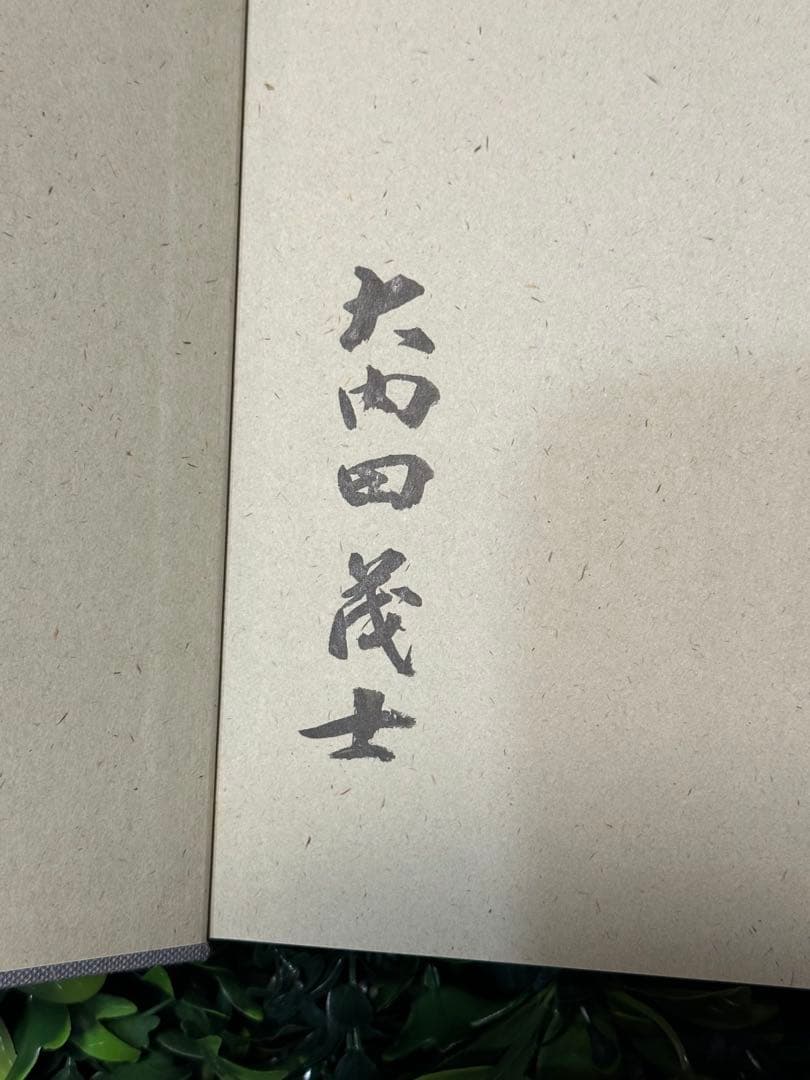 大内田茂士